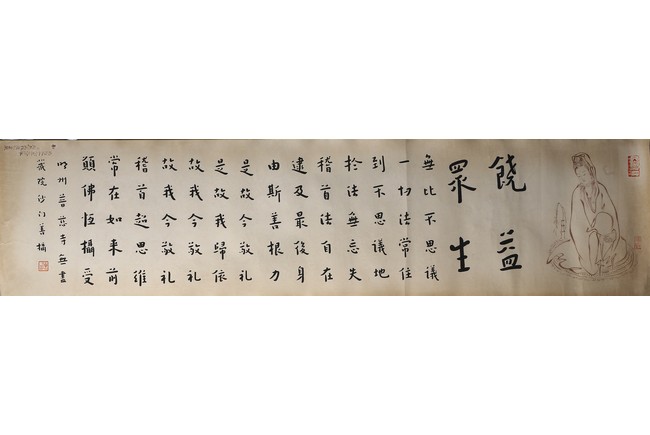 饒益
眾生
無比不思議
一切法常住
到不思議地
於法無忘失
稽首法自在
逮及最後身
由斯善根力
是故我歸依
是故我今敬礼
故我今敬礼
稽首超思維
常在如来前
願佛恒攝受
明州普慈寺無盡
藏院沙门善楠